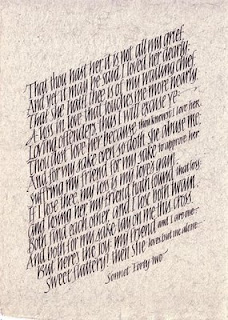 That thou hast her it is not all my grief,
And yet it may be said I loved her dearly;
That she hath thee is of my wailing chief,
A loss in love that touches me more nearly.
Loving offenders thus I will excuse ye:
Thou dost love her because thou know'st I love her,
And for my sake even so doth she abuse me,
Suff'ring my friend for my sake to approve her.
If I lose thee, my loss is my love's gain,
And losing her my friend hath found that loss:
Both find each other, and I lose both twain,
And both for my sake lay on me this cross.
But here's the joy: my friend and I are one.
Sweet flattery! then she loves but me alone.
Sonnet Forty two